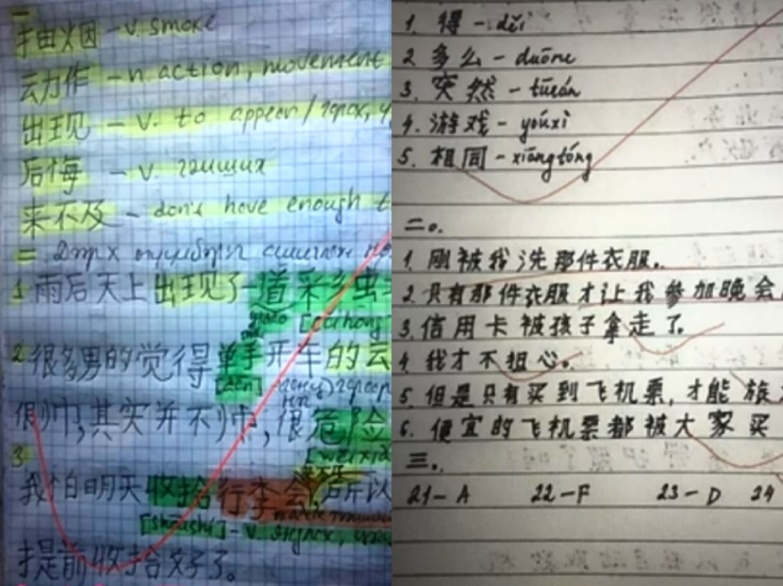 抽烟 - v. smoke
动作 - n. action, movement
出现 - v. to appear /
后悔 - v.
来不及 - don't have enough t
=
1 雨后天上出现了一道彩虹
[caihong
2 很多男的觉得单手开车的
[dān]
很帅,其实并不帅,很危险
[weixiǎ
3
我怕明天收拾行李会 所以
[shōushi] - v.
提前收拾好了。
1. 得 - děi
2 多么 - duōme
3. 突然 - tūrán
4. 游戏 - yóuxì
5. 相同 - xiāngtóng
二。
1. 刚被我洗那件衣服。
2. 只有那件衣服才让我参加晚会
3. 信用卡被孩子拿走了。
4 我才不担心。
5. 但是只有买到飞机票,才能旅
6. 便宜的飞机票都被大家买
三。
21 - A 22 - F 23 - D 24